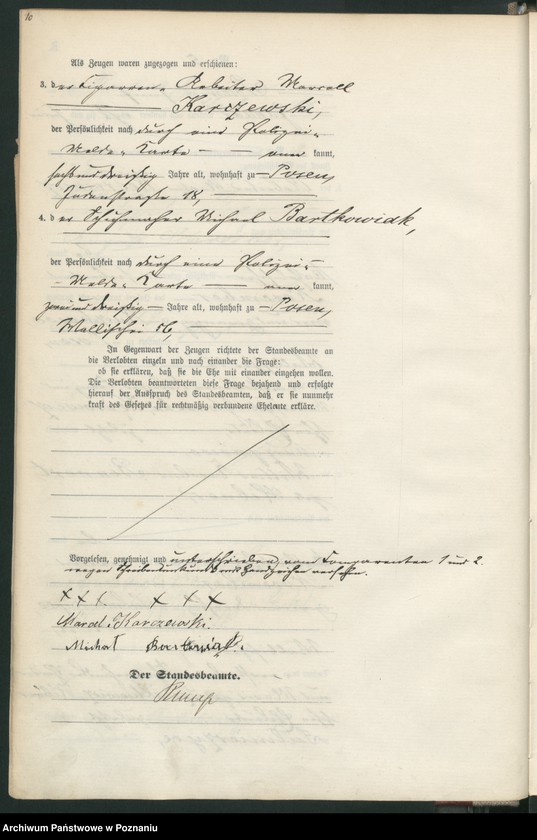 10
Als Zeugen waren zugezogen und erschienen:
3. der Cigarren-Arbeiter Marcell
Karczewski,
der Persönlichkeit nach durch eine Polizei-
Melde-Karte — aner kannt,
sechsunddreißig Jahre alt, wohnhaft zu Posen,
Judenstraße 18,
4. der Schuhmacher Michael Bartkowiak,
der Persönlichkeit nach durch eine Polizei-
Melde-Karte — aner kannt,
zweiunddreißig Jahre alt, wohnhaft zu Posen,
Wallischei 56,
In Gegenwart der Zeugen richtete der Standesbeamte an
die Verlobten einzeln und nach einander die Frage:
ob sie erklären, daß sie die Ehe mit einander eingehen wollen.
Die Verlobten beantworteten diese Frage bejahend und erfolgte
hierauf der Ausspruch des Standesbeamten, daß er sie nunmehr
kraft des Gesetzes für rechtmäßig verbundene Eheleute erkläre.
Vorgelesen, genehmigt und unterschrieben, vom Comparenten 1 und 2
wegen Schreibensunkunde mit Handzeichen versehen.
+ + +. + + +
Marcel. Karczewski.
Michał Bartkowiak.
Der Standesbeamte.
Archiwum Państwowe w Poznaniu